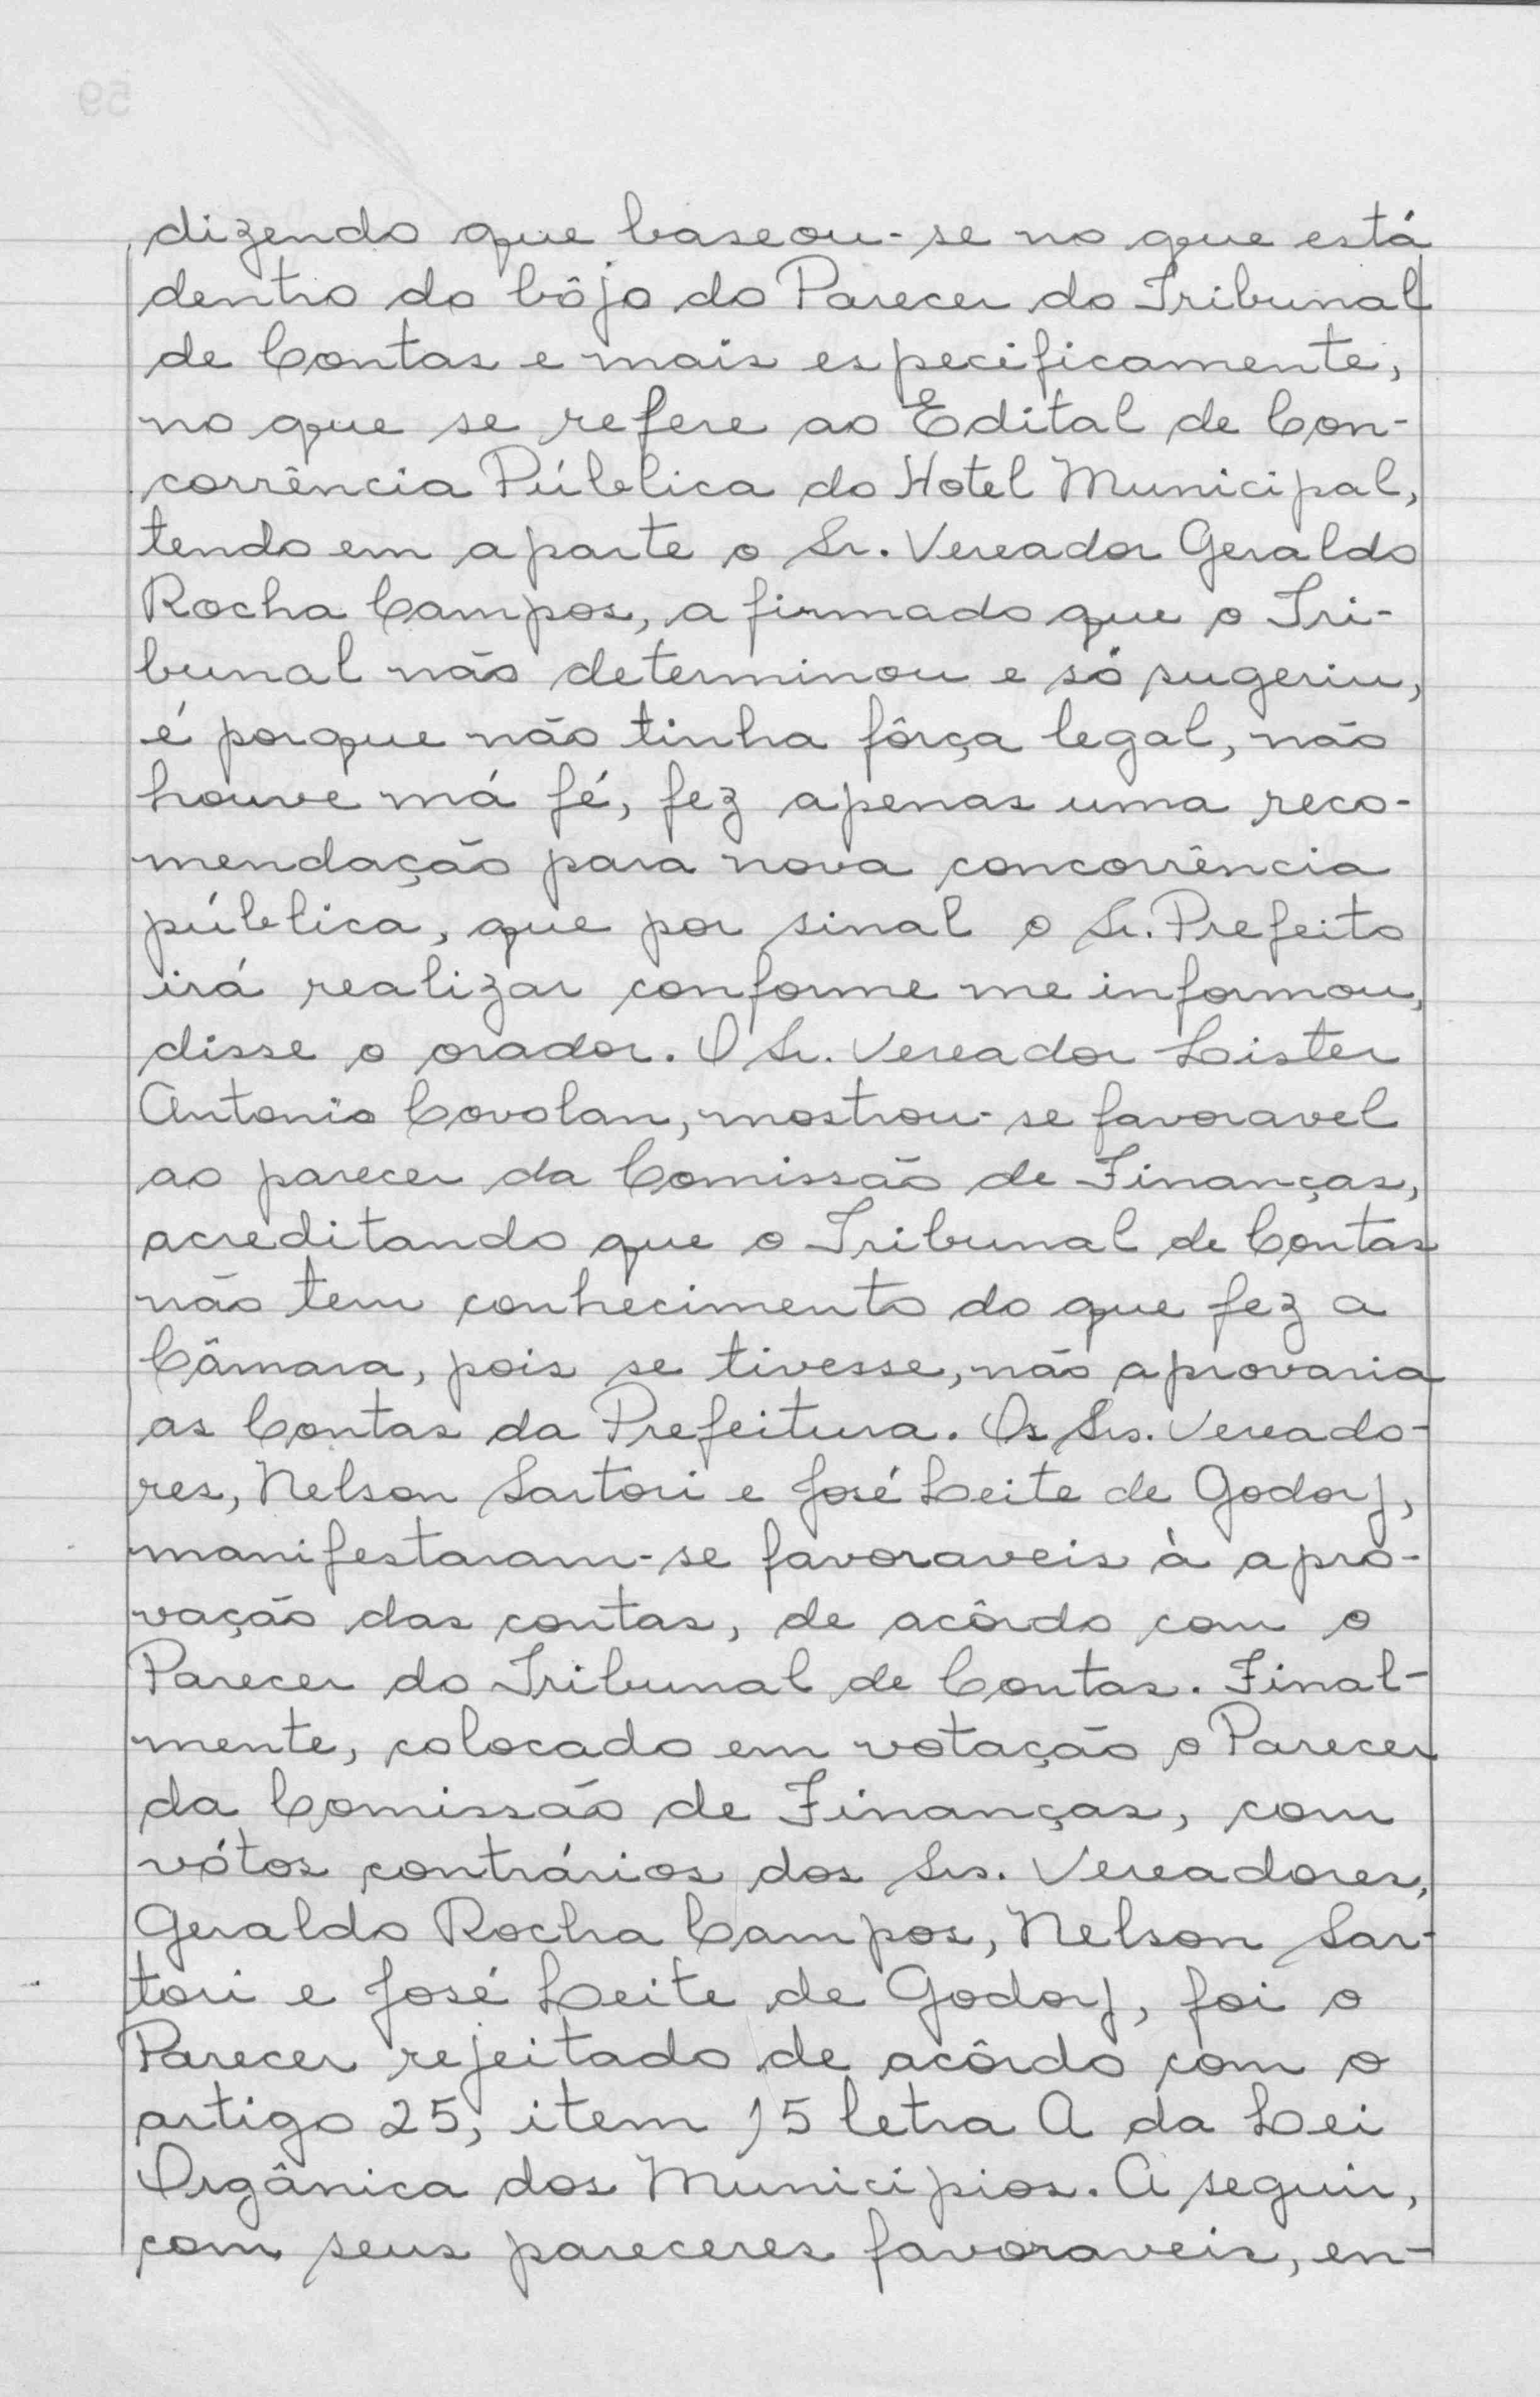 dizendo que baseou-se no que está
dentro do bôjo do Parecer do Tribunal
de Contas e mais especificamente,
no que se refere ao Edital de Con-
corrência Pública do Hotel Municipal,
tendo em aparte o Sr. Vereador Geraldo
Rocha Campos, afirmado que o Tri-
bunal não determinou e só sugeriu,
é porque não tinha fôrça legal, não
houve má fé, fez apenas uma reco-
mendação para nova concorrência
pública, que por sinal o Sr. Prefeito
irá realizar conforme me informou,
disse o orador. O Sr. Vereador Lister
Antonio Covolan, mostrou-se favoravel
ao parecer da Comissão de Finanças,
acreditando que o Tribunal de Contas
não tem conhecimento do que fez a
Câmara, pois se tivesse, não aprovaria
as Contas da Prefeitura. Os Srs. Vereado-
res, Nelson Sartori e José Leite de Godoy,
manifestaram-se favoraveis à apro-
vação das contas, de acôrdo com o
Parecer do Tribunal de Contas. Final-
mente, colocado em votação o Parecer
da Comissão de Finanças, com
vótos contrários dos Srs. Vereadores,
Geraldo Rocha Campos, Nelson Sar-
tori e José Leite de Godoy, foi o
Parecer rejeitado de acôrdo com o
artigo 25, item 15 letra A da Lei
Orgânica dos Municipios. A seguir,
com seus pareceres favoraveis, en-